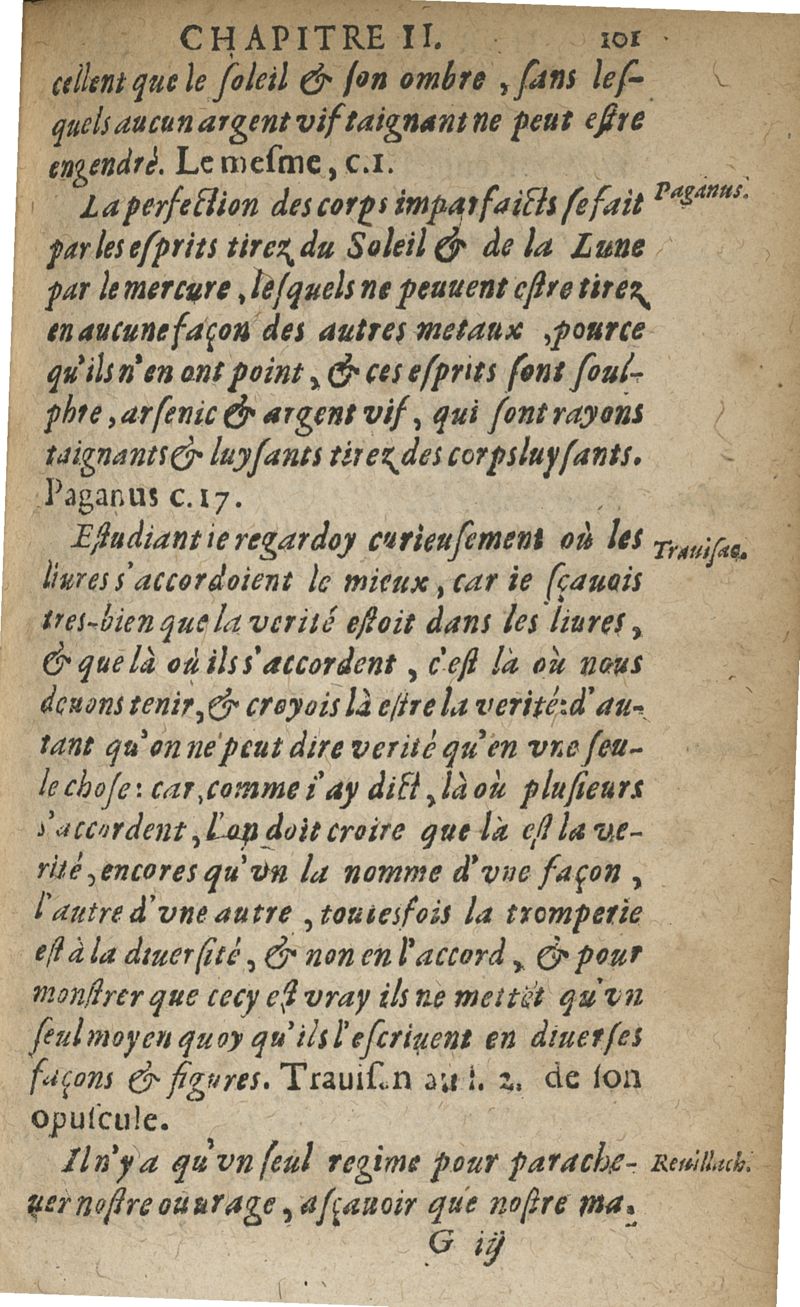 CHAPITRE II. 101
cellent que le ſoleil & ſon ombre, ſans leſ-
quels aucun argent vif taignant ne peut eſtre
engendré. Le meſme, c.1.
La perfection des corps imparfaicts ſe fait
Paganus.
par les eſprits tirez du Soleil & de la Lune
par le mercure, leſquels ne peuuent eſtre tirez
en aucune façon des autres metaux, pource
qu'ils n'en ont point, & ces eſprits ſont ſoul-
phre, arſenic & argent vif, qui ſont rayons
taignants & luyſants tirez des corps luyſants.
Paganus c.17.
Eſtudiant ie regardoy curieuſement où les
Trauiſac.
liures s'accordoient le mieux, car ie ſçauois
tres-bien que la verité eſtoit dans les liures,
& que là où ils s'accordent, c'eſt là où nous
deuons tenir, & croyois là eſtre la verité: d'au-
tant qu'on ne peut dire verité qu'en vne ſeu-
le choſe: car, comme i'ay dict, là où pluſieurs
s'accordent, l'on doit croire que là eſt la ve-
rité, encores qu'vn la nomme d'vne façon,
l'autre d'vne autre, toutesfois la tromperie
eſt à la diuerſité, & non en l'accord, & pour
monſtrer que cecy eſt vray ils ne mettẽt qu'vn
ſeul moyen quoy qu'ils l'eſcriuent en diuerſes
façons & figures. Trauiſan au l. 2. de ſon
opuſcule.
Il n'y a qu'vn ſeul regime pour parache-
Reuillach.
uer noſtre ouurage, aſçauoir que noſtre ma-
G iij